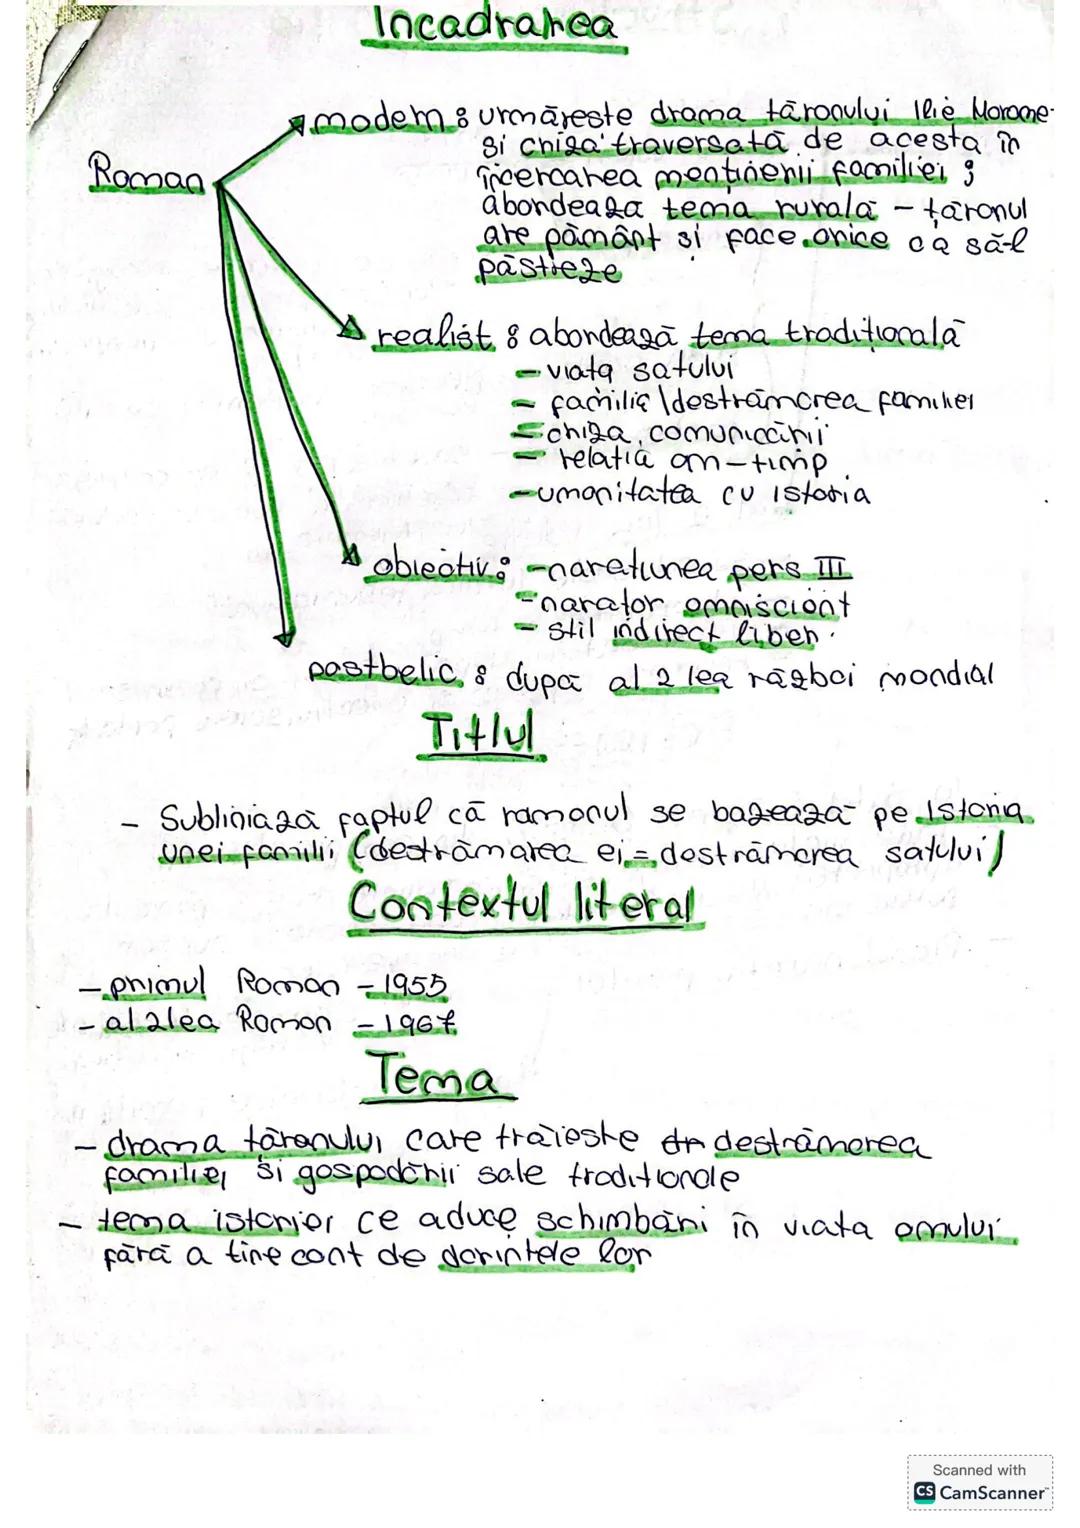 Incadrarea
Roman
modern: urmărește drama țăranului Ilie Morome-
și criza traversată de acesta în
încercarea menținerii familiei;
abordeaza tema rurală - țăranul
are pământ și face orice ca să-l
păstreze
realist: abordează tema tradițională
- viața satului
- familia \ destrămarea familiei
- criza comunicării
- relația om-timp
- umanitatea cu istoria
obiectiv: - narațiunea pers III
- narator omniscient
- stil indirect liber.
postbelic: după al 2 lea război mondial
Titlul
- Subliniază faptul că romanul se bazează pe istoria
unei familii (destrămarea ei = destrămarea satului)
Contextul literal
- primul Roman - 1955
- al 2lea Roman - 1967
Tema
- drama țăranului care trăiește destrămarea
familiei și gospodării sale tradiționale
- tema istoriei ce aduce schimbări în viața omului
fără a ține cont de dorințele lor
Scanned with
CS CamScanner